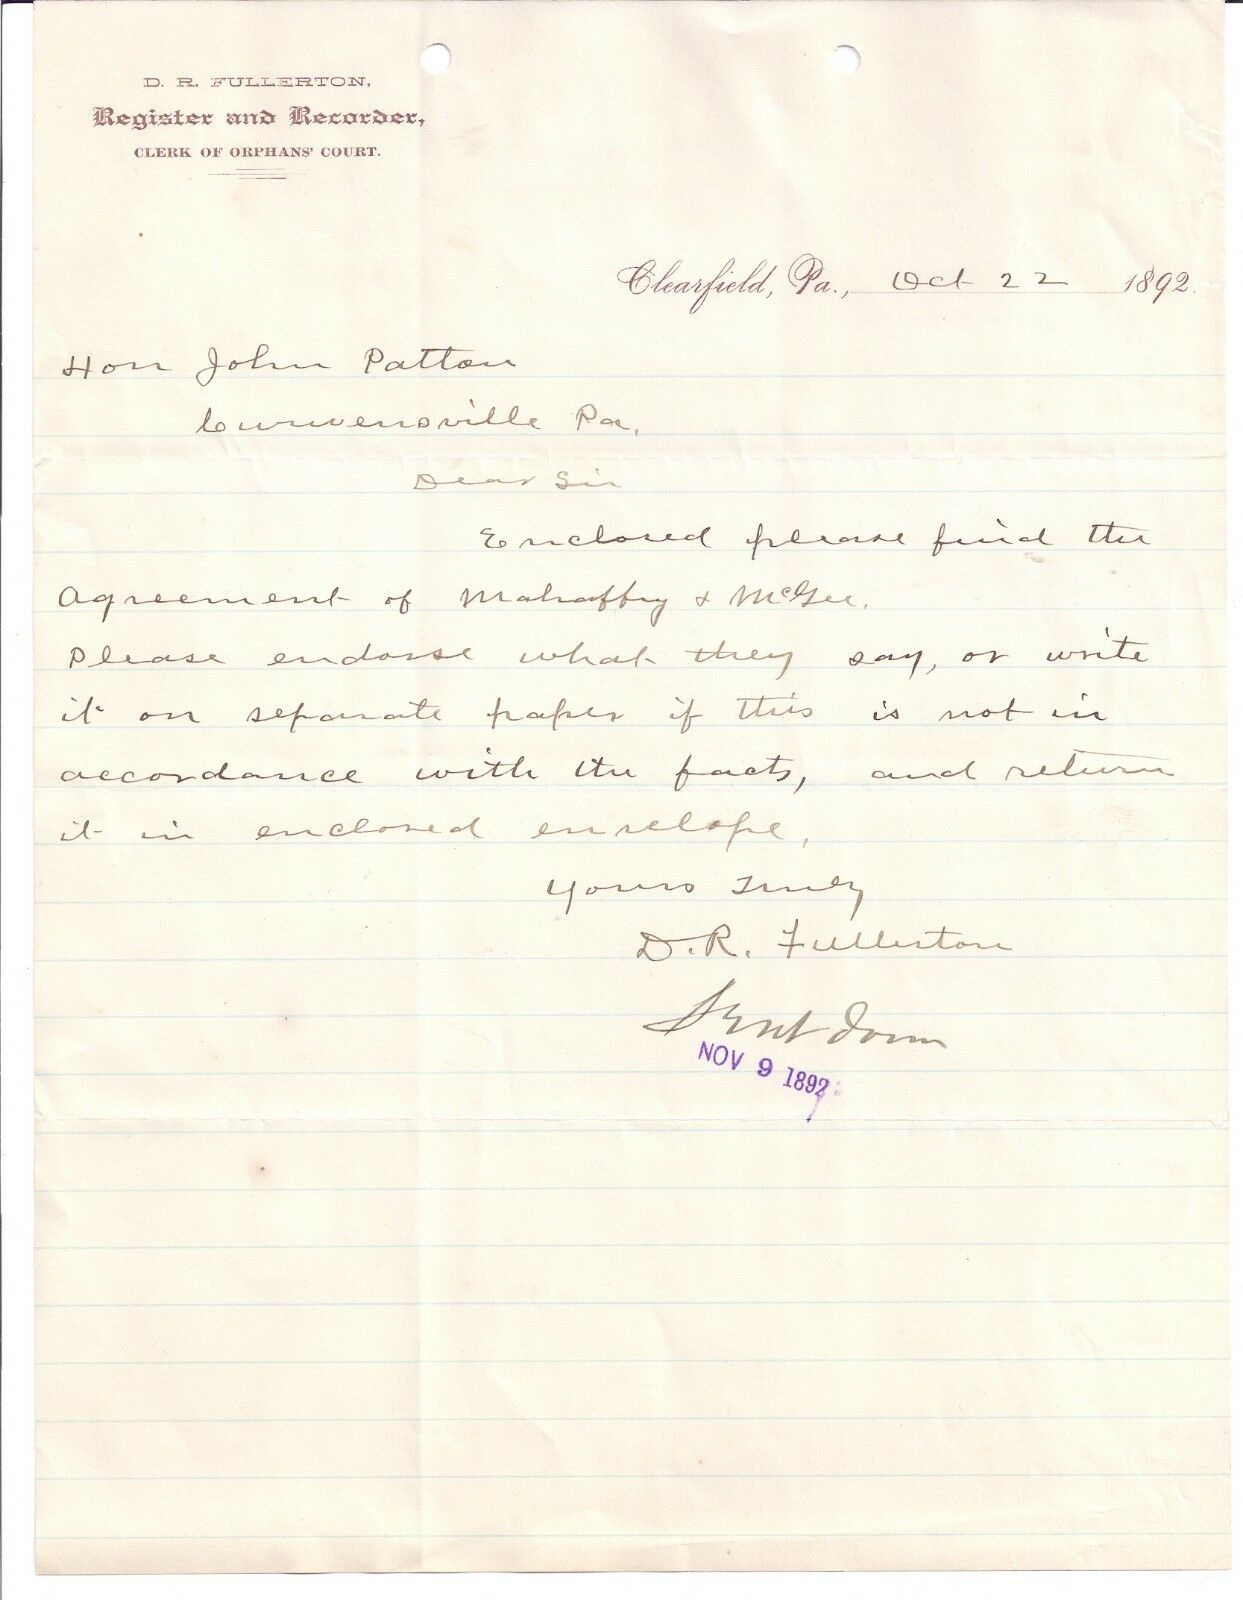 D. R. FULLERTON,
Register and Recorder,
CLERK OF ORPHANS' COURT.
Clearfield, Pa., Oct 22 1892.
Hon John Patton
Curwensville Pa,
Dear Sir
Enclosed please find the
Agreement of Mahaffey & McGee.
Please endorse what they say, or write
it on separate paper if this is not in
accordance with the facts, and return
it in enclosed envelope,
Yours Truly
D. R. Fullerton
Sent down
NOV 9 1892